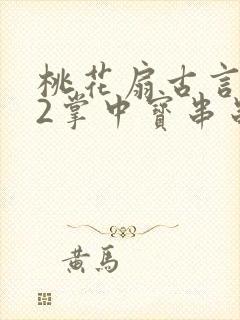 桃花扇古言
2掌中寶串
黄馬